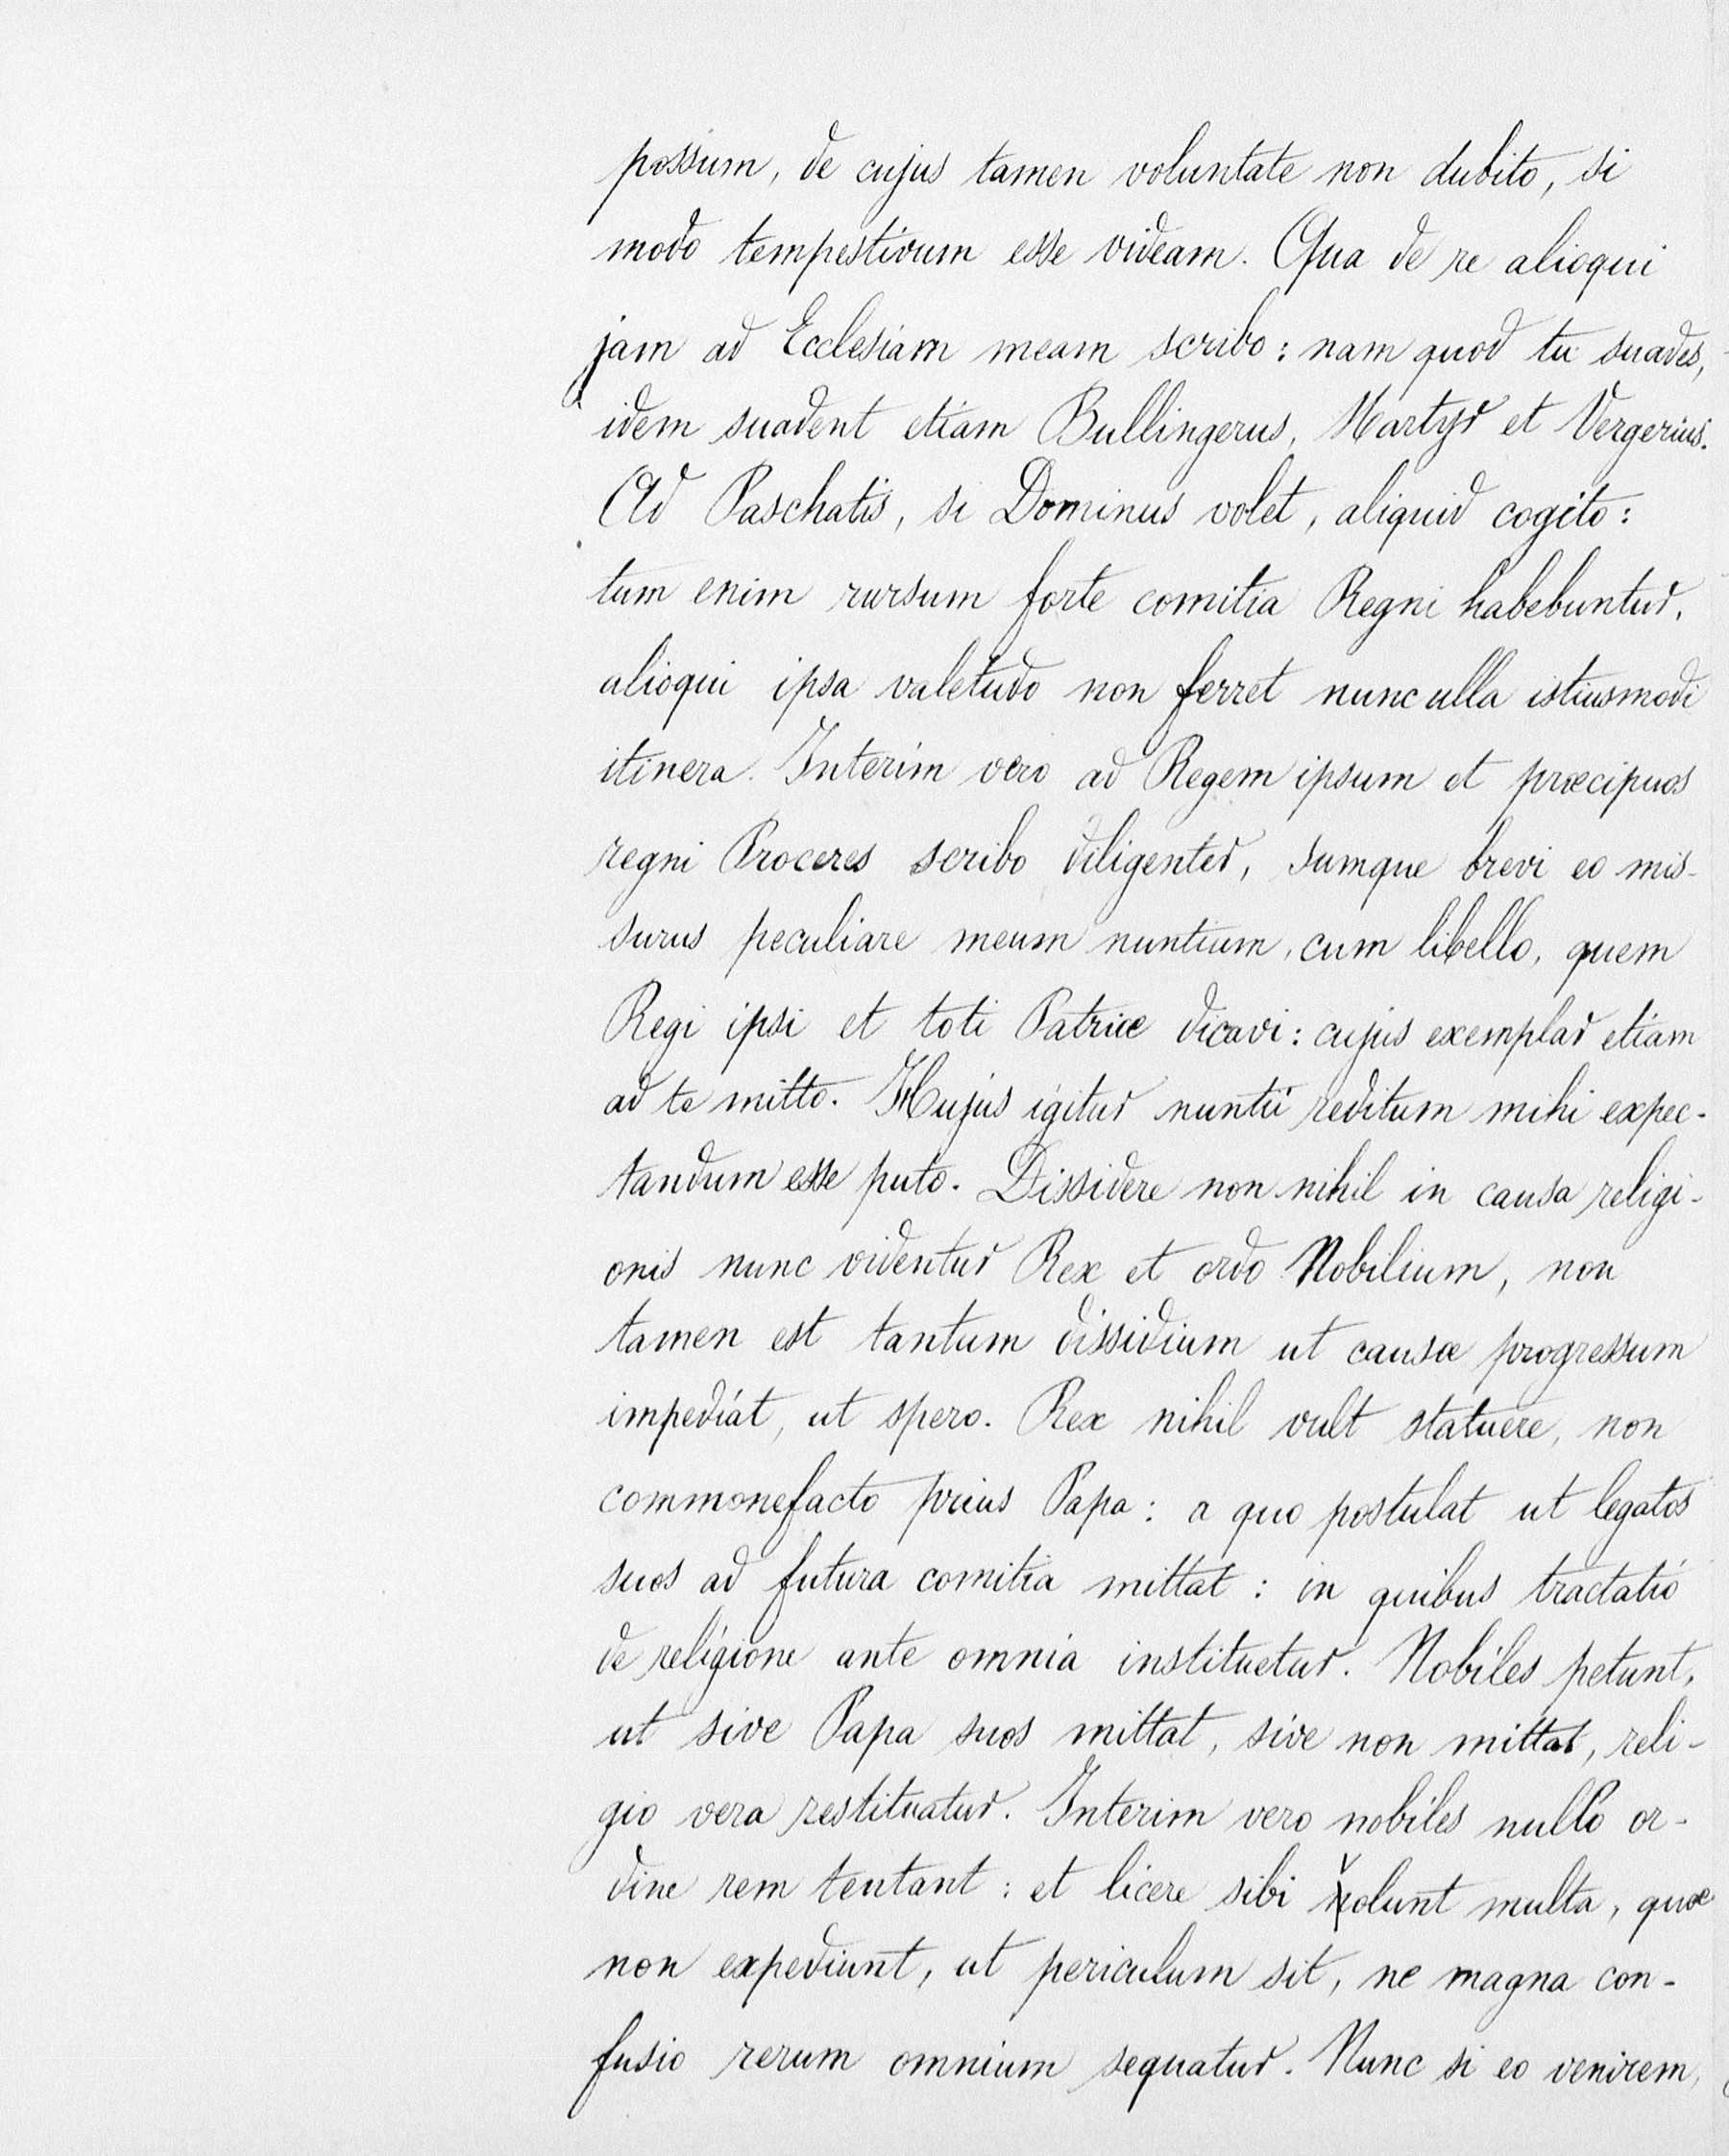 possum, de cujus tamen voluntate non dubito, si
modo tempestivum esse videam. Qua de re alioqui
jam ad Ecclesiam meam scribo: nam quod tu suades,
idem suadent etiam Bullingerus, Martyr et Vergerius.
Ad Paschatis, si Dominus volet, aliquid cogito:
tum enim rursum forte comitia Regni habebuntur,
alioqui ipsa valetudo non ferret nunc ulla istiusmodi
itinera. Interim vero ad Regem ipsum et præcipuos
regni Proceres scribo diligenter, sumque brevi eo mis-
surus peculiare meum nuntium, cum libello, quem
Regi ipsi et toti Patriæ dicavi: cujus exemplar etiam
ad te mitto. Hujus igitur nuntii reditum mihi expec-
tandum esse puto. Dissidere non nihil in causa religi-
onis nunc videntur Rex et ordo Nobilium, non
tamen est tantum dissidium ut causæ progressum
impediat, ut spero. Rex nihil vult statuere, non
commonefacto prius Papa: a quo postulat ut legatos
suos ad futura comitia mittat: in quibus tractatio
de religione ante omnia instituetur. Nobiles petunt,
ut sive Papa suos mittat, sive non mittat, reli-
gio vera restituatur. Interim vero nobiles nullo or-
dine rem tentant: et licere sibi volunt multa, quæ
non expediunt, ut periculum sit, ne magna con-
fusio rerum omnium sequatur. Nunc si eo venirem,